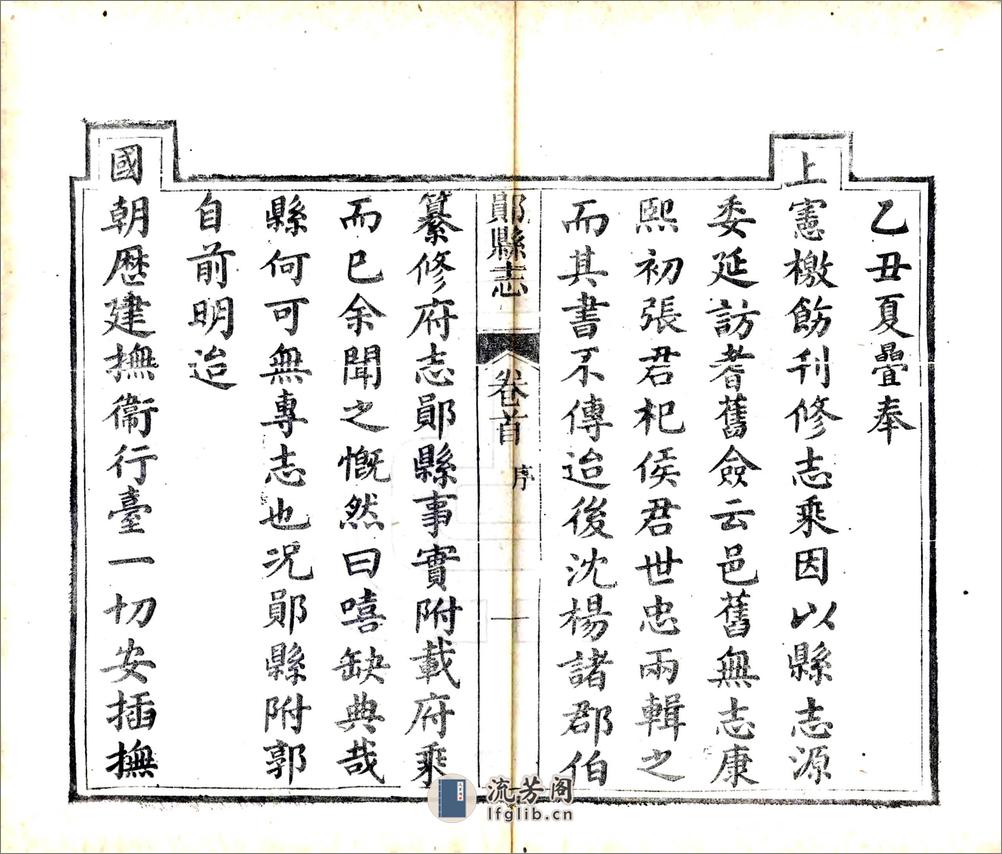 乙丑夏疊奉
上憲檄飭刊修志乘因以縣志源
委延訪耆舊僉云邑舊無志康
熙初張君杞侯君世忠兩輯之
而其書不傳迨後沈楊諸郡伯
鄖縣志 卷首 序 一
纂修府志鄖縣事實附載府乘
而已余聞之慨然曰嘻缺典哉
縣何可無專志也况鄖縣附郭
自前明迨
國朝歴建撫衞行臺一切安插撫
流芳阁
lfglib.cn